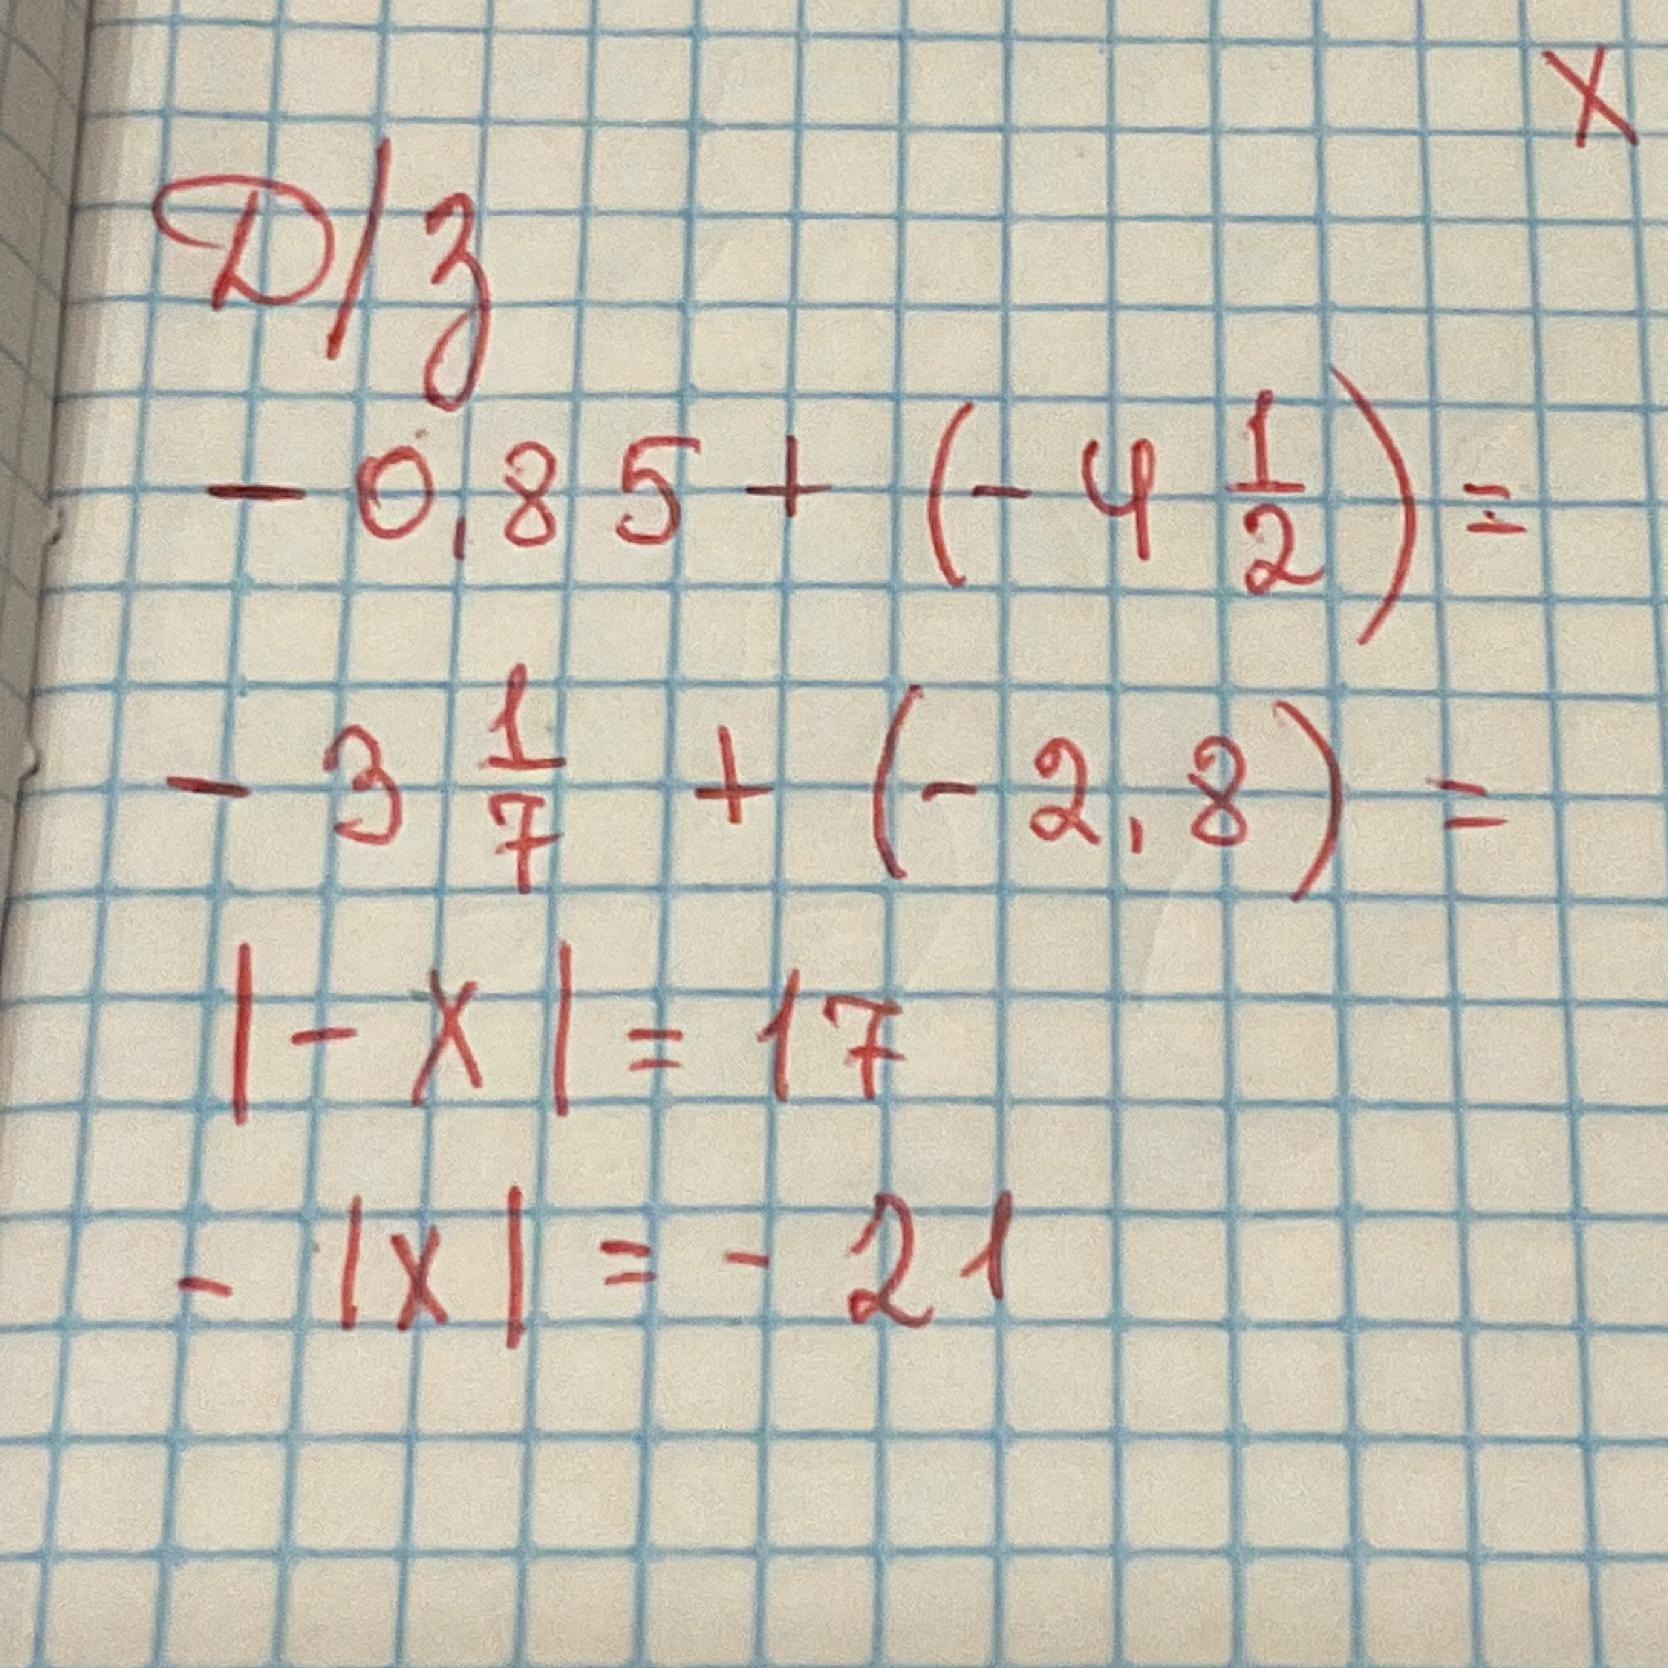 х
Д/з
- 0,85 + (- 4 1/2) =
- 3 1/7 + (- 2,8) =
|- x| = 17
- |x| = - 21